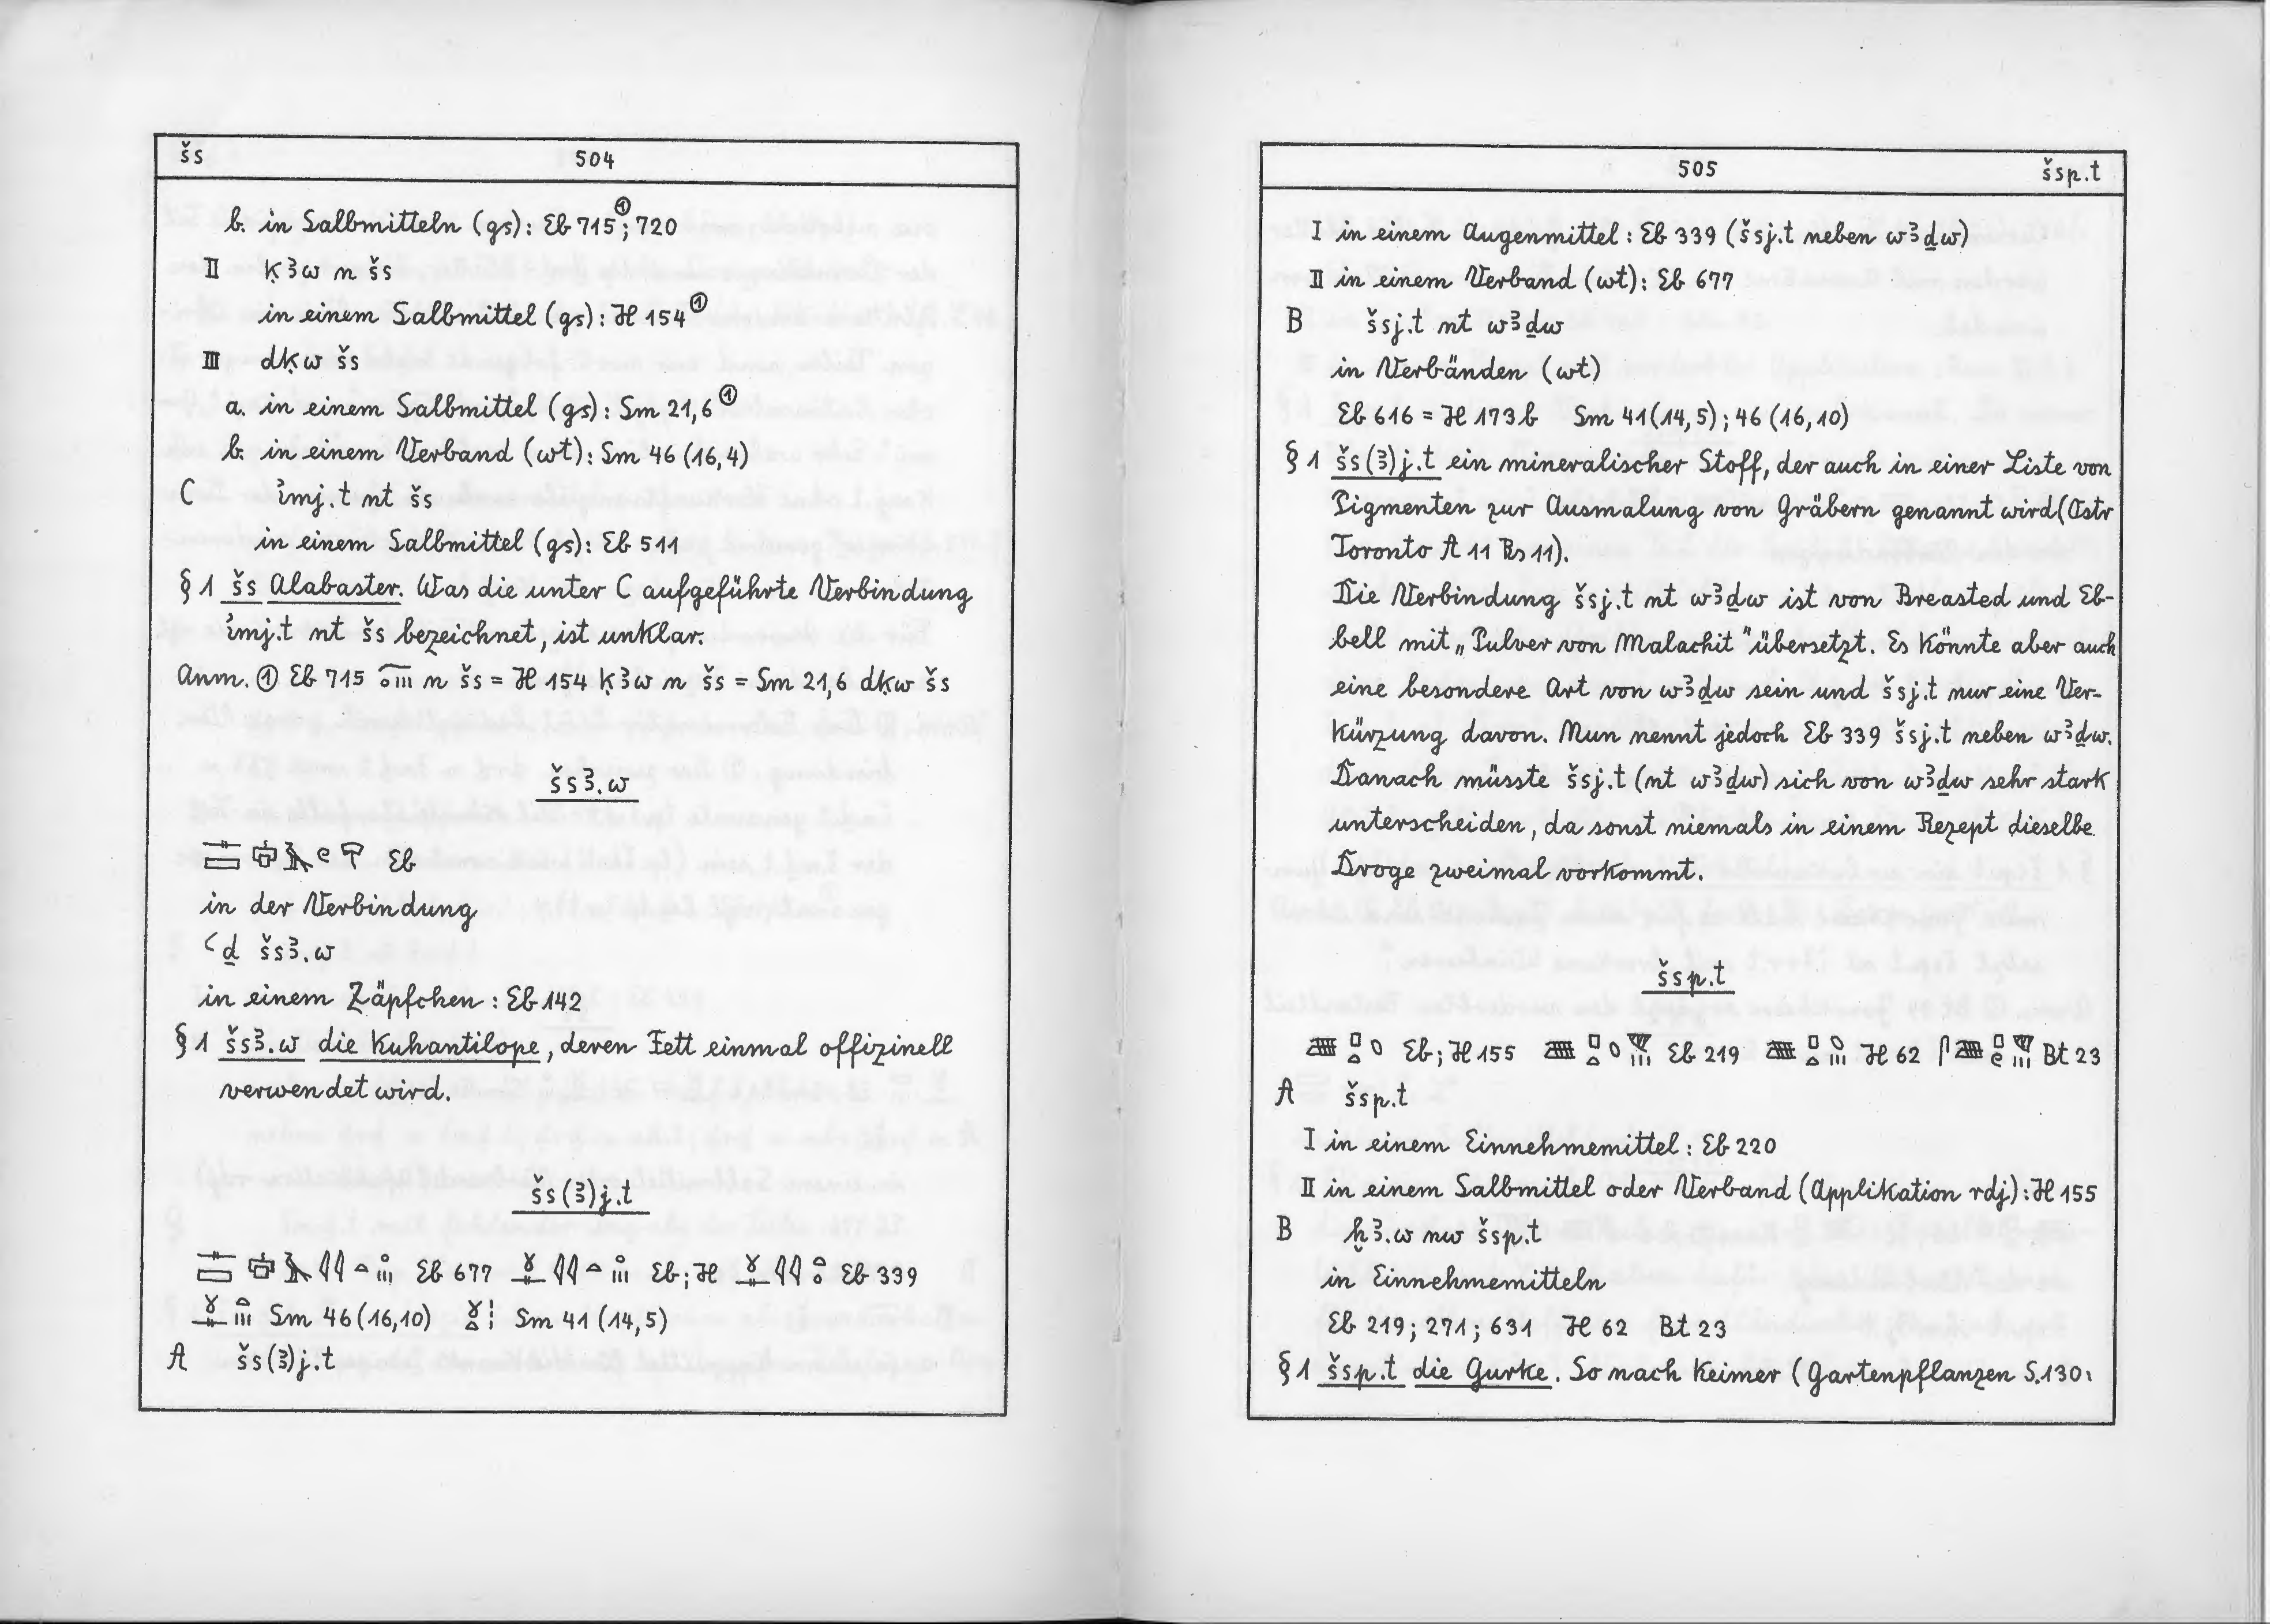 šs 504
b. in Salbmitteln (gs): Eb 715①; 720
II ḳꜣw n šs
in einem Salbmittel (gs): H 154①
III dḳw šs
a. in einem Salbmittel (gs): Sm 21,6①
b. in einem Verband (wt): Sm 46 (16,4)
C ἰmj.t nt šs
in einem Salbmittel (gs): Eb 511
§ 1 šs Alabaster. Was die unter C aufgeführte Verbindung
ἰmj.t nt šs bezeichnet, ist unklar.
Anm. ① Eb 715 n šs = H 154 ḳꜣw n šs = Sm 21,6 dḳw šs
šsꜣ.w
Eb
in der Verbindung
ꜥḏ šsꜣ.w
in einem Zäpfchen: Eb 142
§ 1 šsꜣ.w die Kuhantilope, deren Fett einmal offizinell
verwendet wird.
šs(ꜣ)j.t
Eb 677 Eb; H Eb 339
Sm 46 (16,10) Sm 41 (14,5)
A šs(ꜣ)j.t
505 šsp.t
I in einem Augenmittel: Eb 339 (šsj.t neben wꜣḏw)
II in einem Verband (wt): Eb 677
B šsj.t nt wꜣḏw
in Verbänden (wt)
Eb 616 = H 173 b Sm 41 (14,5); 46 (16,10)
§ 1 šs(ꜣ)j.t ein mineralischer Stoff, der auch in einer Liste von
Pigmenten zur Ausmalung von Gräbern genannt wird (Ostr
Toronto A 11 Rs 11).
Die Verbindung šsj.t nt wꜣḏw ist von Breasted und Eb-
bell mit „Pulver von Malachit" übersetzt. Es könnte aber auch
eine besondere Art von wꜣḏw sein und šsj.t nur eine Ver-
kürzung davon. Nun nennt jedoch Eb 339 šsj.t neben wꜣḏw.
Danach müsste šsj.t (nt wꜣḏw) sich von wꜣḏw sehr stark
unterscheiden, da sonst niemals in einem Rezept dieselbe
Droge zweimal vorkommt.
šsp.t
Eb; H 155 Eb 219 H 62 Bt 23
A šsp.t
I in einem Einnehmemittel: Eb 220
II in einem Salbmittel oder Verband (Applikation rdj): H 155
B ẖꜣ.w nw šsp.t
in Einnehmemitteln
Eb 219; 271; 631 H 62 Bt 23
§ 1 šsp.t die Gurke. So nach Keimer (Gartenpflanzen S. 130;